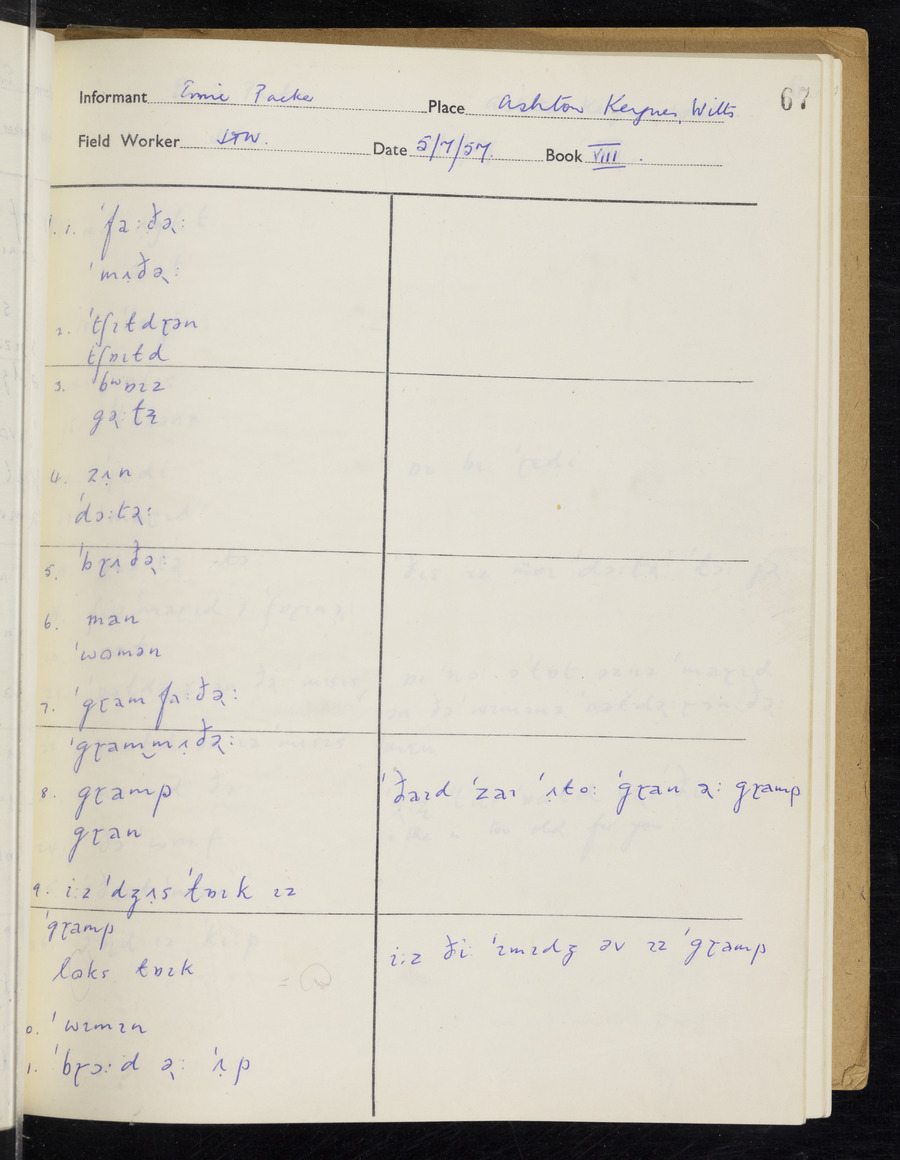 Informant Ernie Packer Place Ashton Keynes, Wilts 67
Field Worker JTW. Date 5/7/57. Book VIII.
1. ˈfaːðə˞ː
ˈmʌ̣ðə˞ː
2. ˈtʃɪtdɽən
tʃɒɪtd
3. bʷɒɪz
gə˞ːtz̩
4. zʌ̣n
ˈdɔːtə˞ː
5. ˈbɽʌ̣ðə˞ː
6. man
ˈwʊmən
7. ˈgɽamfaːðə˞ː
ˈgɽammʌ̣ðə˞ː
8. gɽamp ˈðaɪd ˈzaɪ ˈʌ̣toː ˈgɽan ə˞ː gɽamp
gɽan
9. iːz ˈdʒʌ̣s ˈtɒɪk ɪz
ˈgɽamp
lʊks tɒɪk iːz ðiː ˈɪmɪdʒ əv ɪz ˈgɽamp
0. ˈwɪmɪn
1. ˈbɽɔːd ə˞ː ˈʌ̣p